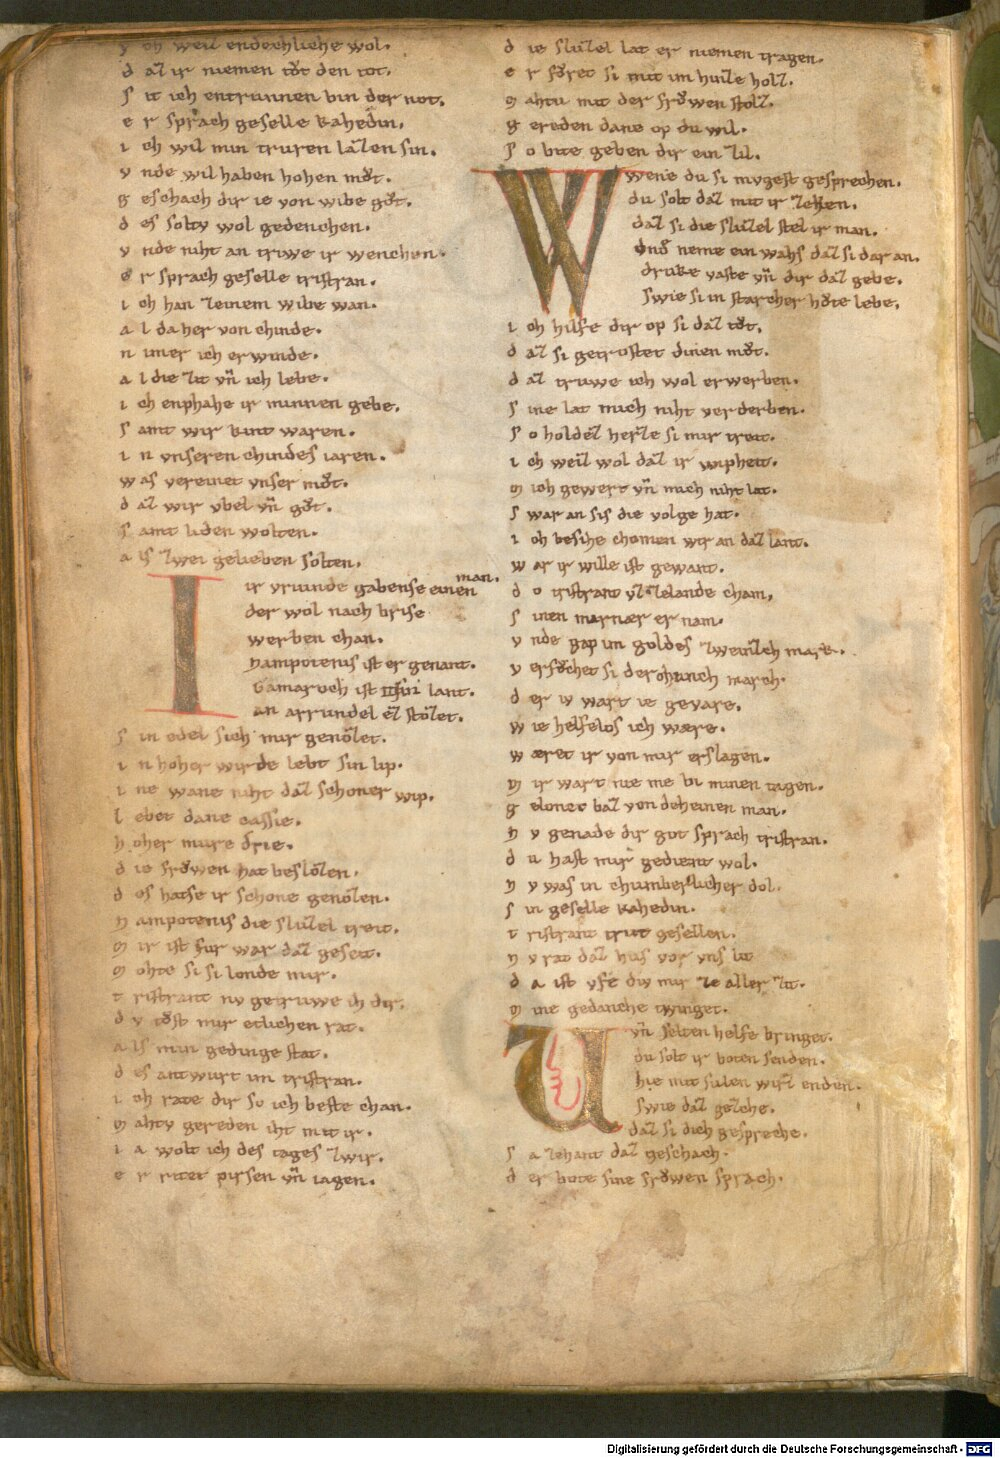 v ch weil endechliche wol.
d aƺ ir niemen tǒt den tot.
s it ich entrunnen bin der not.
e r sprach geselle kahedin.
i ch wil min truren laƺen sin.
v nde wil haben hohen mǒt.
g eschach dir ie von wibe gǒt.
d es soltv wol gedenchen.
v nde niht an triwe ir wenchen.
e r sprach geselle tristran.
i ch han zeinem wibe wan.
a l da her von chinde.
n imer ich erwinde.
a l die zit vn̄ ich lebe.
i ch enphahe ir minnen gebe.
s amt wir kint waren.
i n vnseren chindes iaren.
w as vereinet vnser mǒt.
d aƺ wir vbel vn̄ gǒt.
s amt liden wolten.
a ls zwei gelieben solten.
I ir vriunde gabense einen man.
der wol nach brise
werben chan.
nampotenis ist er genant.
gamaroch ist sin lant.
an arrundel eƺ stoƺet.
s in edel sich mir genoƺet.
i n hoher wirde lebt sin lip.
i ne wane niht daƺ schoner wip.
l ebet dane cassie.
h oher mure drie.
d ie frǒwen hat besloƺen.
d es hatse ir schone genoƺen.
n ampotenis die sluƺel treit.
m ir ist fur war daƺ geseit.
m ohte si si londe mir.
t ristrant nv getruwe ih dir.
d v tǒst mir etlichen rat.
a ls min gedinge stat.
d es antwurt im tristran.
i ch rate dir so ich beste chan.
m ahtv gereden iht mit ir.
i a wolt ich des tages zwir.
e r ritet pirsen vn̄ iagen.
d ie sluƺel lat er niemen tragen.
e r fǒret si mit im huile holƺ.
m ahtu mit der frǒwen stolƺ.
g ereden dane op du wil.
s o bite geben dir ein zil.
W wenie du si mvgest gesprechen.
du solt daƺ mit ir zechen.
daƺ si die sluƺel stel ir man.
vnd neme ein wahs daƺ si dar an.
druke vaste vn̄ dir daƺ gebe.
swie si in starcher hǒte lebe.
i ch hilfe dir op si daƺ tǒt.
d aƺ si getrostet dinen mǒt.
d aƺ truwe ich wol erwerben.
s ine lat mich niht verderben.
s o holdeƺ herze si mir treit.
i ch weiƺ wol daƺ ir wipheit.
m ich gewert vn̄ mich niht lat.
s war an sis die volge hat.
i ch besihe chomen wir an daƺ lant.
w ar ir wille ist gewant.
d o tristrant vƺ zelande cham.
s inen marnær er nam.
v nde gap im goldes zweinzch mark.
v ersǒchet si der chunch march.
d er iv wart ie gevare.
w ie helfelos ich wære.
w æret ir von mir erslagen.
m ir wart nie me bi minen tagen.
g elonet baƺ von deheinen man.
n v genade dir got sprach tristran.
d u hast mir gedient wol.
n v was in chumberlicher dol.
s in geselle kahedin.
t ristrant trut gesellen.
n v rat daƺ hus vor vns lit
d a ist vfe div mir ze aller zit.
m ine gedanche twinget.
U vn̄ selten helfe bringet.
du solt ir boten senden.
hie mit sulen wirƺ enden.
swie daƺ geschehe.
daƺ si dich gespreche.
s a zehant daƺ geschach.
d er bote sine frǒwen sprach.
Digitalisierung gefördert durch die Deutsche Forschungsgemeinschaft - DFG